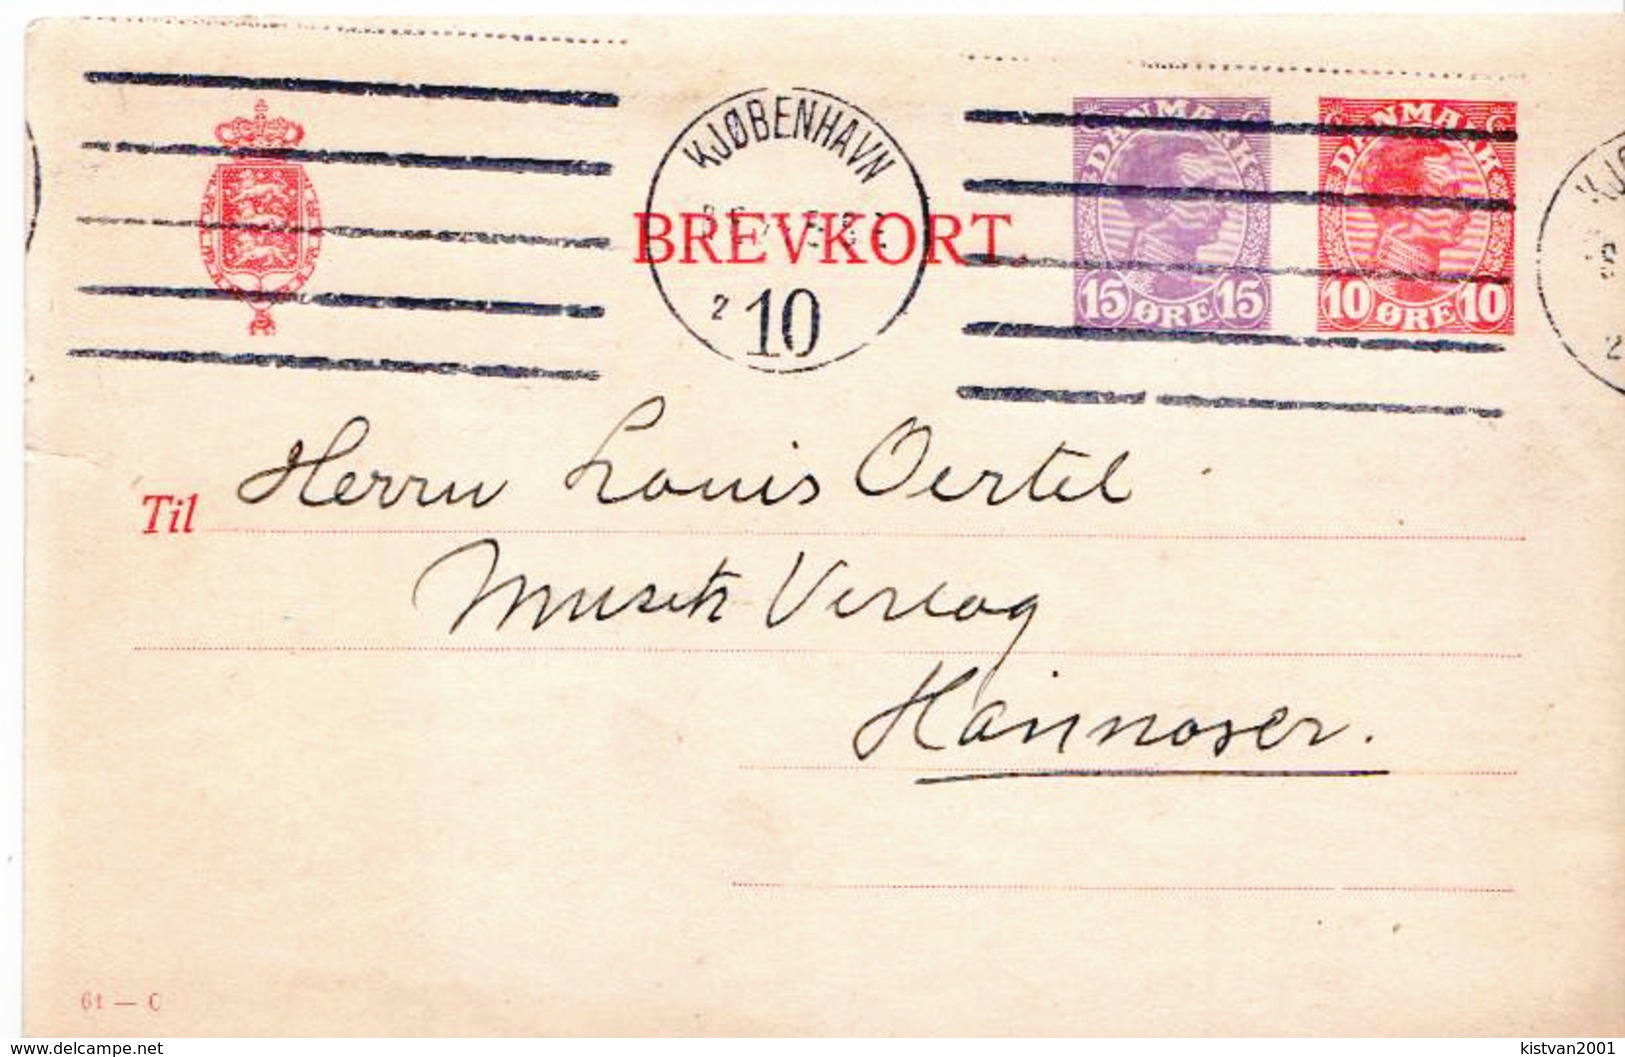 KJØBENHAVN
2 10
BREVKORT.
DANMARK
15 ØRE 15
DANMARK
10 ØRE 10
KJØ
2
Til Herrn Louis Oertel
Musik Verlag
Hannover.
61 — C
www.delcampe.net
kistvan2001